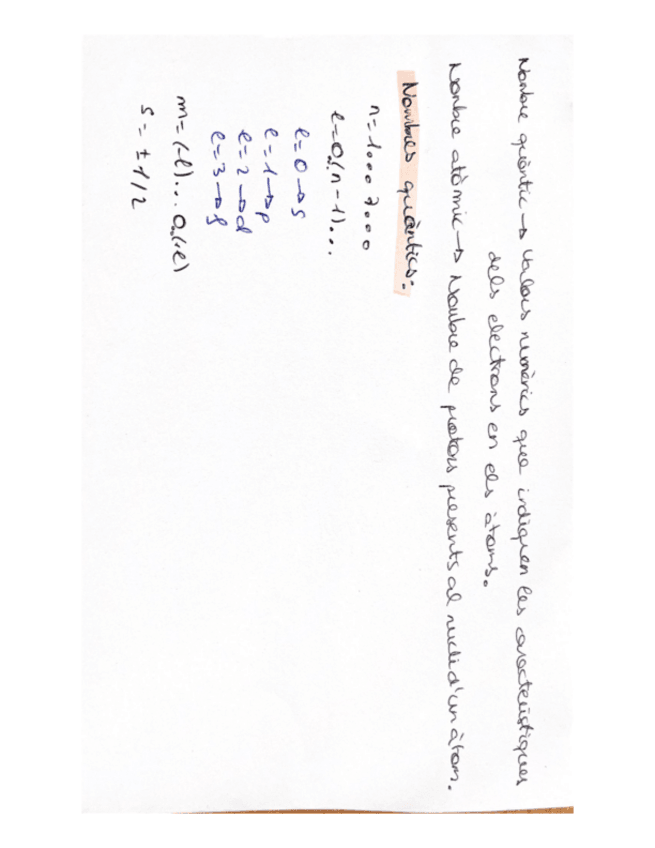 Nombre quàntic → Valors numèrics que indiquen les característiques
dels electrons en els àtoms.
Nombre atòmic → Nombre de protons presents al nucli d'un àtom.
Nombres quàntics:
n = 1...7...
l = 0,(n-1)...
l = 0 → s
l = 1 → p
l = 2 → d
l = 3 → f
m = (-l)...0,(+l)
s = ± 1/2